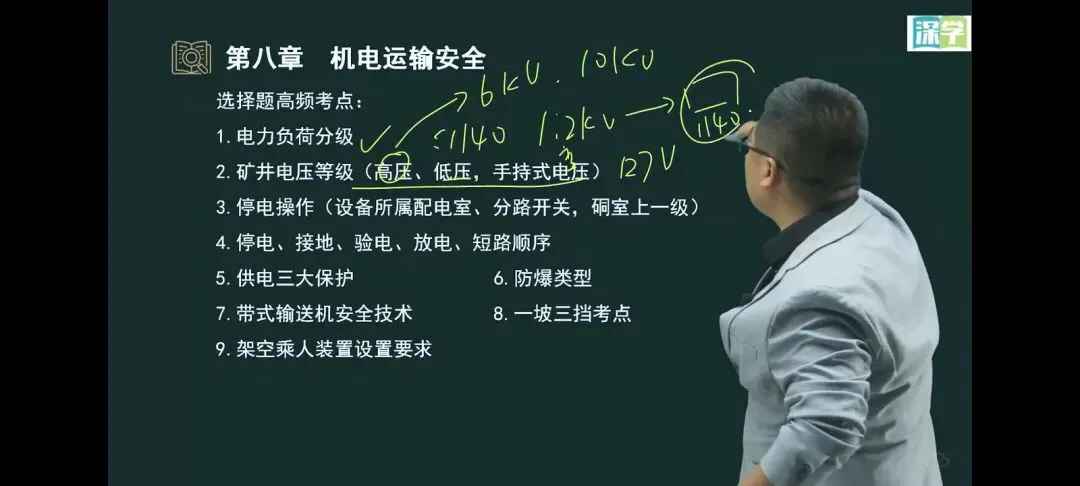 深学
第八章 机电运输安全
6KV. 10KV
选择题高频考点：
1140 1.2KV 1140
1.电力负荷分级
2.矿井电压等级（高压、低压，手持式电压） 127V
3.停电操作（设备所属配电室、分路开关，硐室上一级）
4.停电、接地、验电、放电、短路顺序
5.供电三大保护 6.防爆类型
7.带式输送机安全技术 8.一坡三挡考点
9.架空乘人装置设置要求